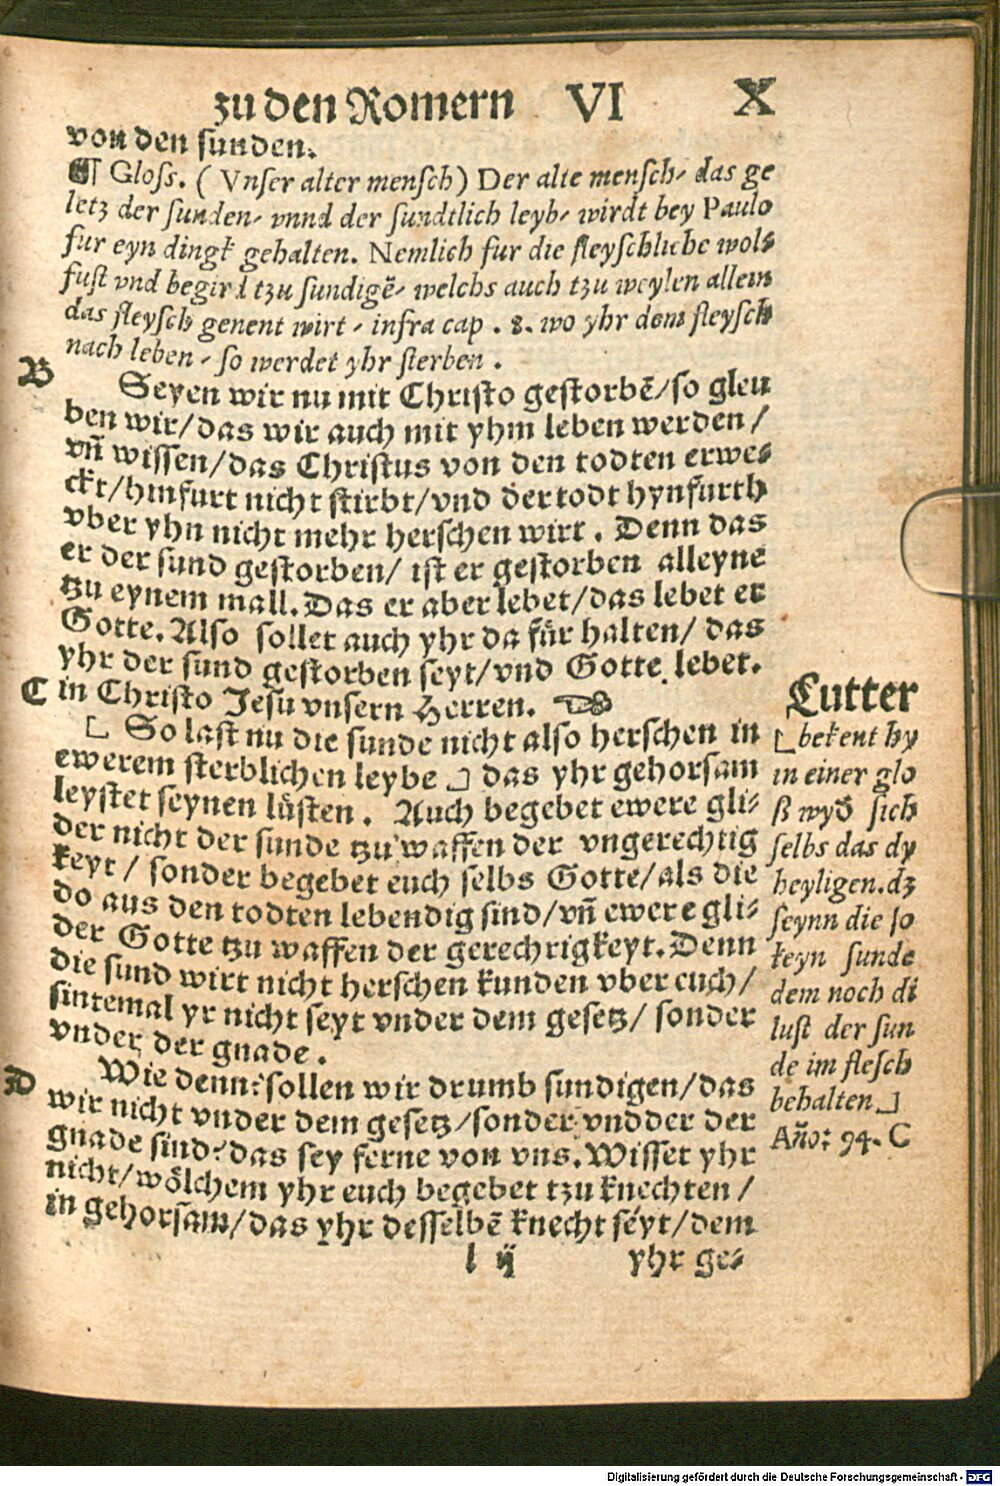 zu den Romern VI X
von den sunden.
¶ Gloss. ( Vnser alter mensch ) Der alte mensch, das ge
letz der sunden, vnnd der sundtlich leyb, wirdt bey Paulo
fur eyn dingk gehalten. Nemlich fur die fleyschliche wol⸗
fust vnd begird tzu sundigē, welchs auch tzu weylen allein
das fleysch genent wirt, infra cap . 8. wo yhr dem fleysch
nach leben, so werdet yhr sterben .
B
Seyen wir nu mit Christo gestorbē/so gleu
ben wir/das wir auch mit yhm leben werden/
vñ wissen/das Christus von den todten erwe⸗
ckt/hinfurt nicht stirbt/vnd der todt hynfurth
vber yhn nicht mehr herschen wirt. Denn das
er der sund gestorben/ ist er gestorben alleyne
tzu eynem mall. Das er aber lebet/das lebet er
Gotte. Also sollet auch yhr da für halten/ das
yhr der sund gestorben seyt/vnd Gotte lebet.
C in Christo Jesu vnsern Herren.
[ So last nu die sunde nicht also herschen in
ewerem sterblichen leybe ] das yhr gehorsam
leystet seynen lüsten. Auch begebet ewere gli⸗
der nicht der sunde tzu waffen der vngerechtig
keyt/ sonder begebet euch selbs Gotte/als die
do aus den todten lebendig sind/vñ ewere gli⸗
der Gotte tzu waffen der gerechtigkeyt. Denn
die sund wirt nicht herschen kunden vber euch/
sintemal yr nicht seyt vnder dem gesetz/ sonder
vnder der gnade.
D
Wie denn? sollen wir drumb sundigen/das
wir nicht vnder dem gesetz/sonder vndder der
gnade sind? das sey ferne von vns. Wisset yhr
nicht/wölchem yhr euch begebet tzu knechten/
in gehorsam/das yhr desselbē knecht seyt/dem
l ij yhr ge⸗
Lutter
[ bekent hy
in einer glo
ß wyd sich
selbs das dy
heyligen.dz
seynn die so
keyn sunde
dem noch di
lust der sun
de im flesch
behalten ]
Año: 94. C
Digitalisierung gefördert durch die Deutsche Forschungsgemeinschaft - DFG